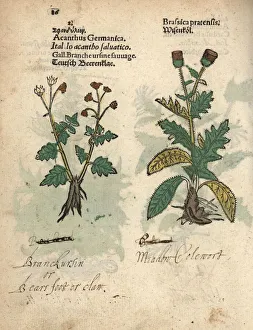 Acanthus Germanica.
Ital. lo acantho saluatico.
Gall. Branche ursine sauuage.
Teutsch Beerenklae.
Brassica pratensis.
Wisenköl.
Branckursin
or
Bears foot or claw.
Meadow Colewort